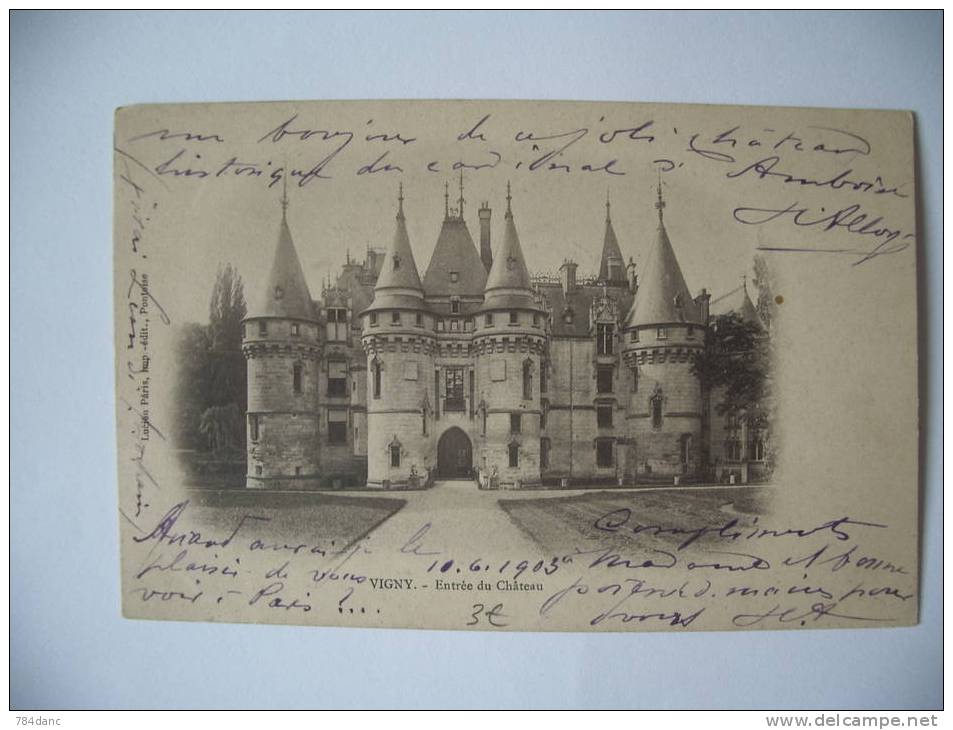 un bonjour de ce joli château
historique du cardinal d'Amboise
H. Alloy
Lucien Pâris, imp.-édit., Pontoise
Quand aurai-je le
plaisir de vous
voir à Paris ?...
10.6.1903
VIGNY. - Entrée du Château
3€
Compliments
à Madame et bonne
poignée d. mains pour
vous H.A
784danc
www.delcampe.net